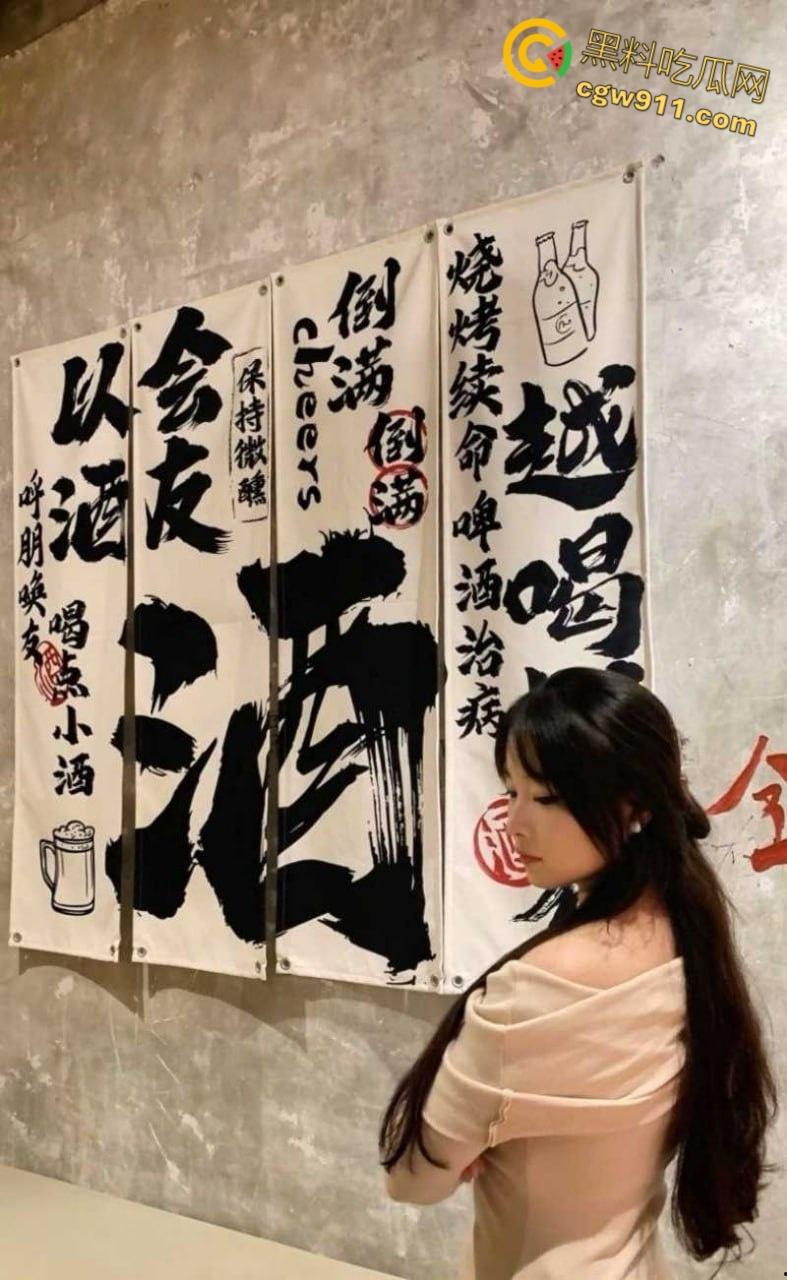 黑料吃瓜网
cgw911.com
以酒
会友
保持微醺
呼朋唤友
喝点小酒
倒满
cheers
倒满
酒
烧烤续命啤酒治病
越喝越
酒
酒
全